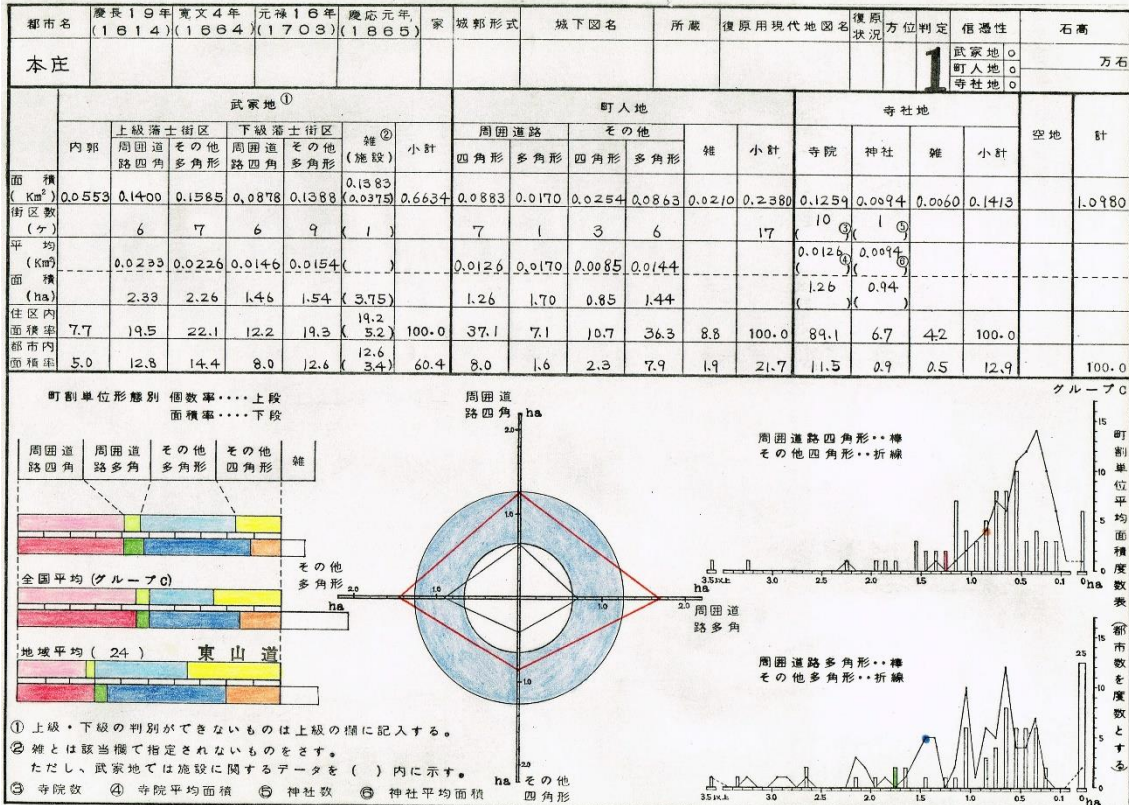 都市名 慶長19年(1614) 寛文4年(1664) 元禄16年(1703) 慶応元年(1865) 家 城郭形式 城下図名 所蔵 復原用現代地図名 復原状況 方位 判定 信憑性 石高
本庄 1 武家地 ○ 万石
町人地 ○
寺社地 ○
武家地① 町人地 寺社地 空地 計
内郭 上級藩士街区 下級藩士街区 雑②(施設) 小計 周囲道路 その他 雑 小計 寺院 神社 雑 小計
周囲道路四角 その他多角形 周囲道路四角 その他多角形 四角形 多角形 四角形 多角形
面積(Km²) 0.0553 0.1400 0.1585 0.0878 0.1388 0.1383(0.0375) 0.6634 0.0883 0.0170 0.0254 0.0863 0.0210 0.2380 0.1259 0.0094 0.0060 0.1413 1.0980
街区数(ヶ) 6 7 6 9 (1) 7 1 3 6 17 10(③) 1(⑤)
平均(Km²) 0.0233 0.0226 0.0146 0.0154 ( ) 0.0126 0.0170 0.0085 0.0144 0.0126(④) 0.0094(⑥)
面積(ha) 2.33 2.26 1.46 1.54 (3.75) 1.26 1.70 0.85 1.44 1.26( ) 0.94( )
住区内面積率 7.7 19.5 22.1 12.2 19.3 19.2(5.2) 100.0 37.1 7.1 10.7 36.3 8.8 100.0 89.1 6.7 4.2 100.0
都市内面積率 5.0 12.8 14.4 8.0 12.6 12.6(3.4) 60.4 8.0 1.6 2.3 7.9 1.9 21.7 11.5 0.9 0.5 12.9 100.0
町割単位形態別 個数率‥‥上段
面積率‥‥下段
周囲道路四角 周囲道路多角 その他多角形 その他四角形 雑
全国平均(グループC)
地域平均(24) 東山道
① 上級・下級の判別ができないものは上級の欄に記入する。
② 雑とは該当欄で指定されないものをさす。
ただし、武家地では施設に関するデータを( )内に示す。
③ 寺院数 ④ 寺院平均面積 ⑤ 神社数 ⑥ 神社平均面積
周囲道路四角 ha
2.0
1.0
その他多角形 ha
2.0 1.0 2.0 ha
周囲道路多角
1.0
2.0
ha その他四角形
グループC
周囲道路四角形‥棒
その他四角形‥折線
15
10
5
0
3.5以上 3.0 2.5 2.0 1.5 1.0 0.5 0 ha
周囲道路多角形‥棒
その他多角形‥折線
25
15
10
5
0
3.5以上 3.0 2.5 2.0 1.5 1.0 0.5 0 ha
町割単位平均面積度数表(都市数を度数とする)